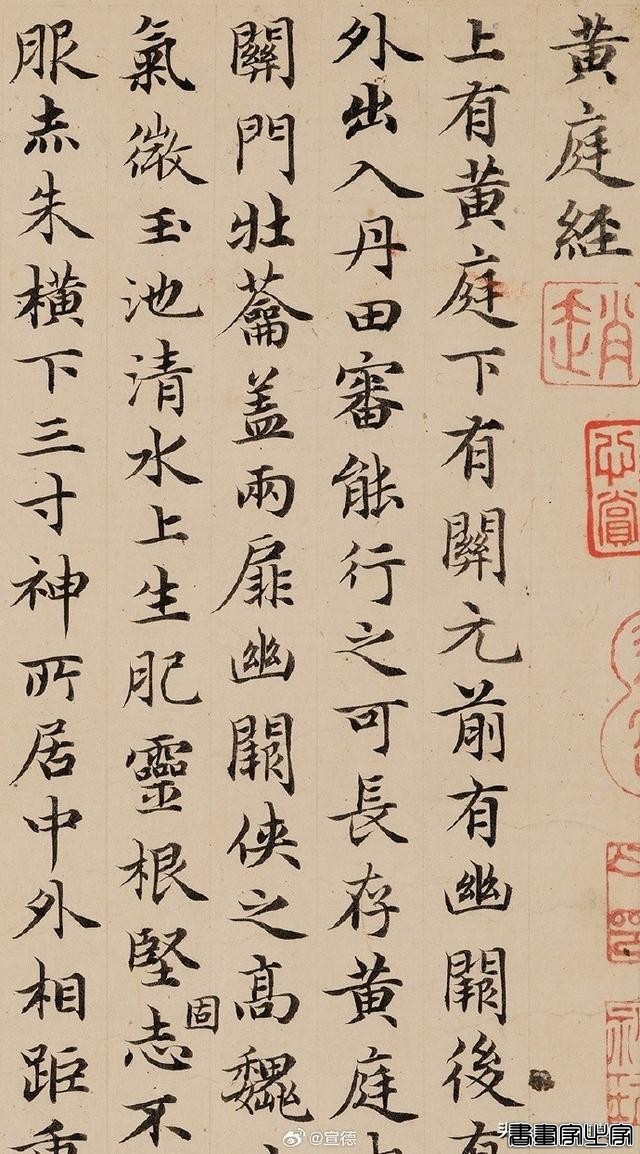 黄庭経
上有黄庭下有關元前有幽闕後有
外出入丹田審能行之可長存黄庭
關門壯蘥盖兩扉幽闕俠之高巍
氣微玉池清水上生肥靈根堅志不
固
服赤朱横下三寸神所居中外相距重
趙
心賞
@宣德